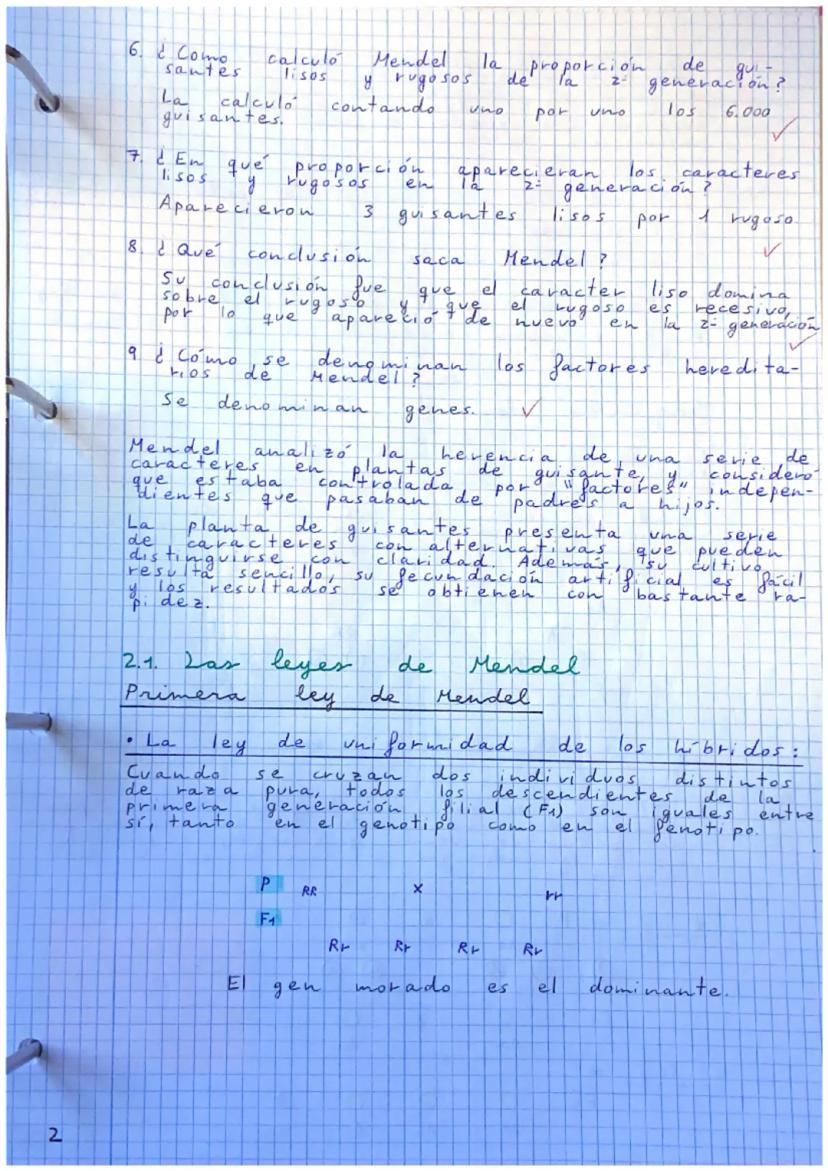 6. ¿ Como calculó Mendel la proporción de gui-
santes lisos y rugosos de la 2ª generación?
La calculó contando uno por uno los 6.000
guisantes.
7. ¿ En qué proporción aparecieran los caracteres
lisos y rugosos en la 2ª generación?
Aparecieron 3 guisantes lisos por 1 rugoso
8. ¿ Qué conclusión saca Mendel?
Su conclusión fue que el caracter liso domina
sobre el rugoso y que el rugoso es recesivo,
por lo que apareció de nuevo en la 2ª generación
9 ¿ Cómo se denominan los factores heredita-
rios de Mendel?
Se denominan genes.
Mendel analizó la herencia de una serie de
caracteres en plantas de guisante, y consideró
que estaba controlada por "factores" indepen-
dientes que pasaban de padres a hijos.
La planta de guisantes presenta una serie
de caracteres con alternativas que pueden
distinguirse con claridad. Además, su cultivo
resulta sencillo, su fecundación artificial es fácil
y los resultados se obtienen con bastante ra-
pidez.
2.1. Las leyes de Mendel
Primera ley de Mendel
• La ley de uniformidad de los híbridos:
Cuando se cruzan dos individuos distintos
de raza pura, todos los descendientes de la
primera generación filial (F1) son iguales entre
sí, tanto en el genotipo como en el fenotipo.
P RR x rr
F1
Rr Rr Rr Rr
El gen morado es el dominante.
2